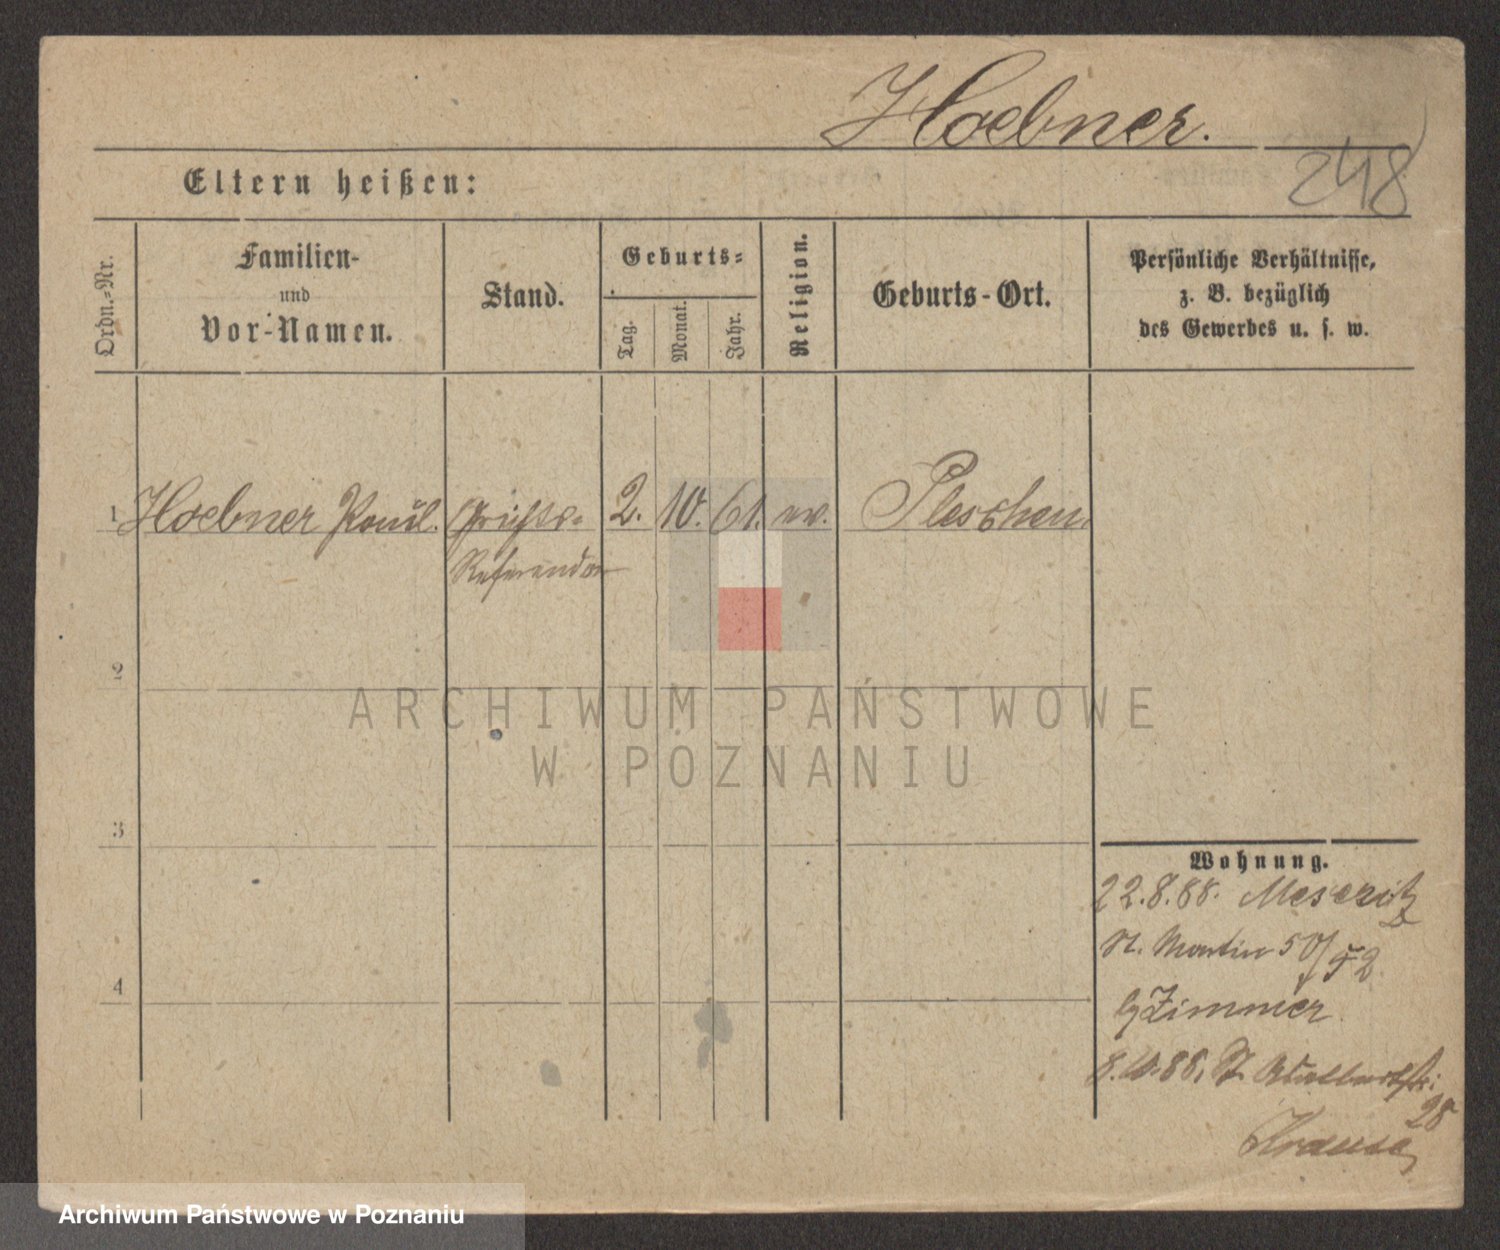 Hoebner.
248
Eltern heißen:
Ordn.=Nr.
Familien-
und
Vor-Namen.
Stand.
Geburts=
Tag.
Monat.
Jahr.
Religion.
Geburts-Ort.
Persönliche Verhältnisse,
z. B. bezüglich
des Gewerbes u. s. w.
1 Hoebner Paul. Gerichts- 2. 10. 61. ev. Pleschen
Referendar
2
3
4
Wohnung.
22.8.88. Meseritz
St. Martin 50/52
Zimmer
8.10.88. St. Adalbertstr:
28
Krause
ARCHIWUM PAŃSTWOWE
W POZNANIU
Archiwum Państwowe w Poznaniu